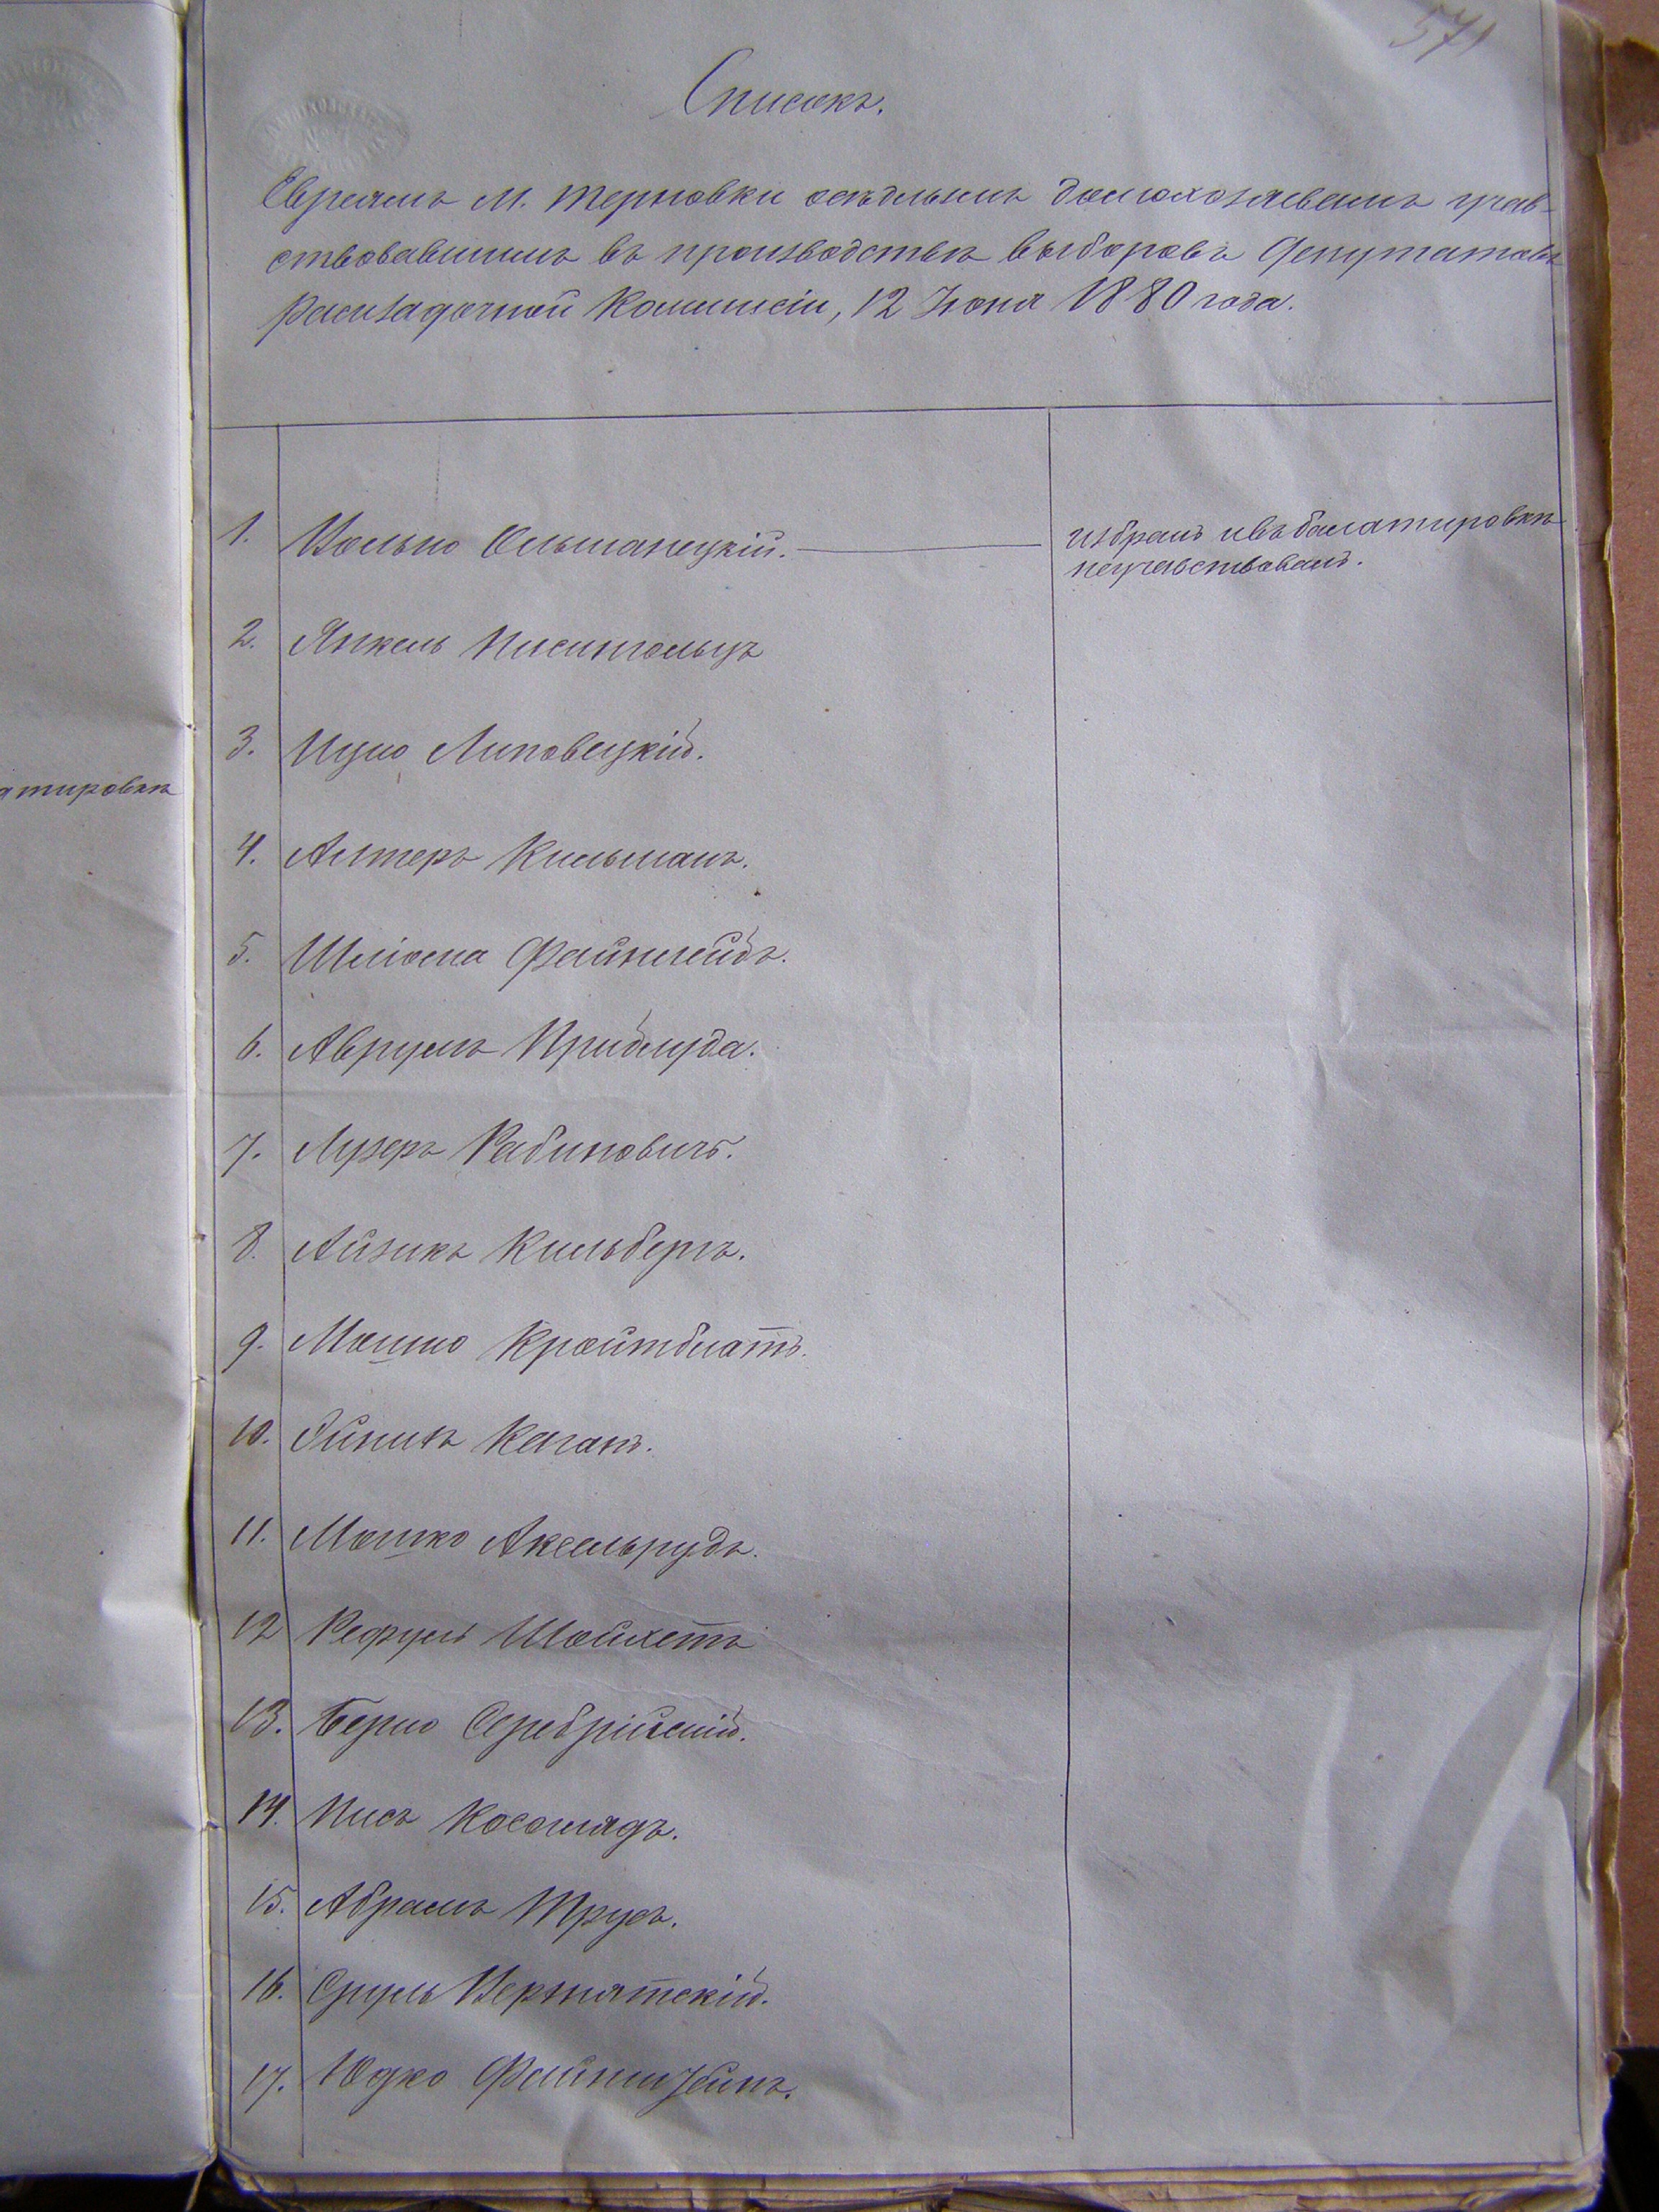 571
Списокъ.
Евреямъ м. Терновки осѣдлымъ домохозяевамъ учав-
ствовавшимъ въ производствѣ выборовъ депутатовъ
раскладочной Коммисіи, 12 Іюня 1880 года.
1. Волько Ольшанецкій. избранъ и въ балатировкѣ
неучавствовалъ.
2. Янкель
3. Ицко Липовецкій.
4. Алтеръ Кильманъ.
5. Шліома Файнклейдъ.
6. Аврумъ Приблуда.
7. Лузеръ Рабиновичъ.
8. Айзикъ Кильбергъ.
9. Мошко Кройтблатъ.
10. Каганъ.
11. Мошко Аксельрудъ.
12 Рафулъ Шойхетъ
13. Берко Серебрійскій.
14. Косоглядъ.
15. Абрамъ Трусъ.
16. Сруль Вернятскій.
17. Юдко Файнштейнъ.
атировкѣ